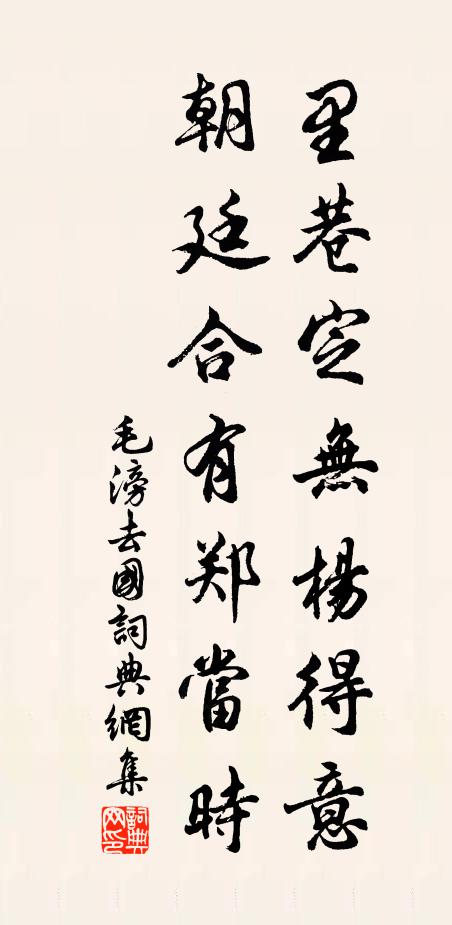 里巷定無楊得意
朝廷合有郑當時
毛滂去國詞典網集
詞典网印